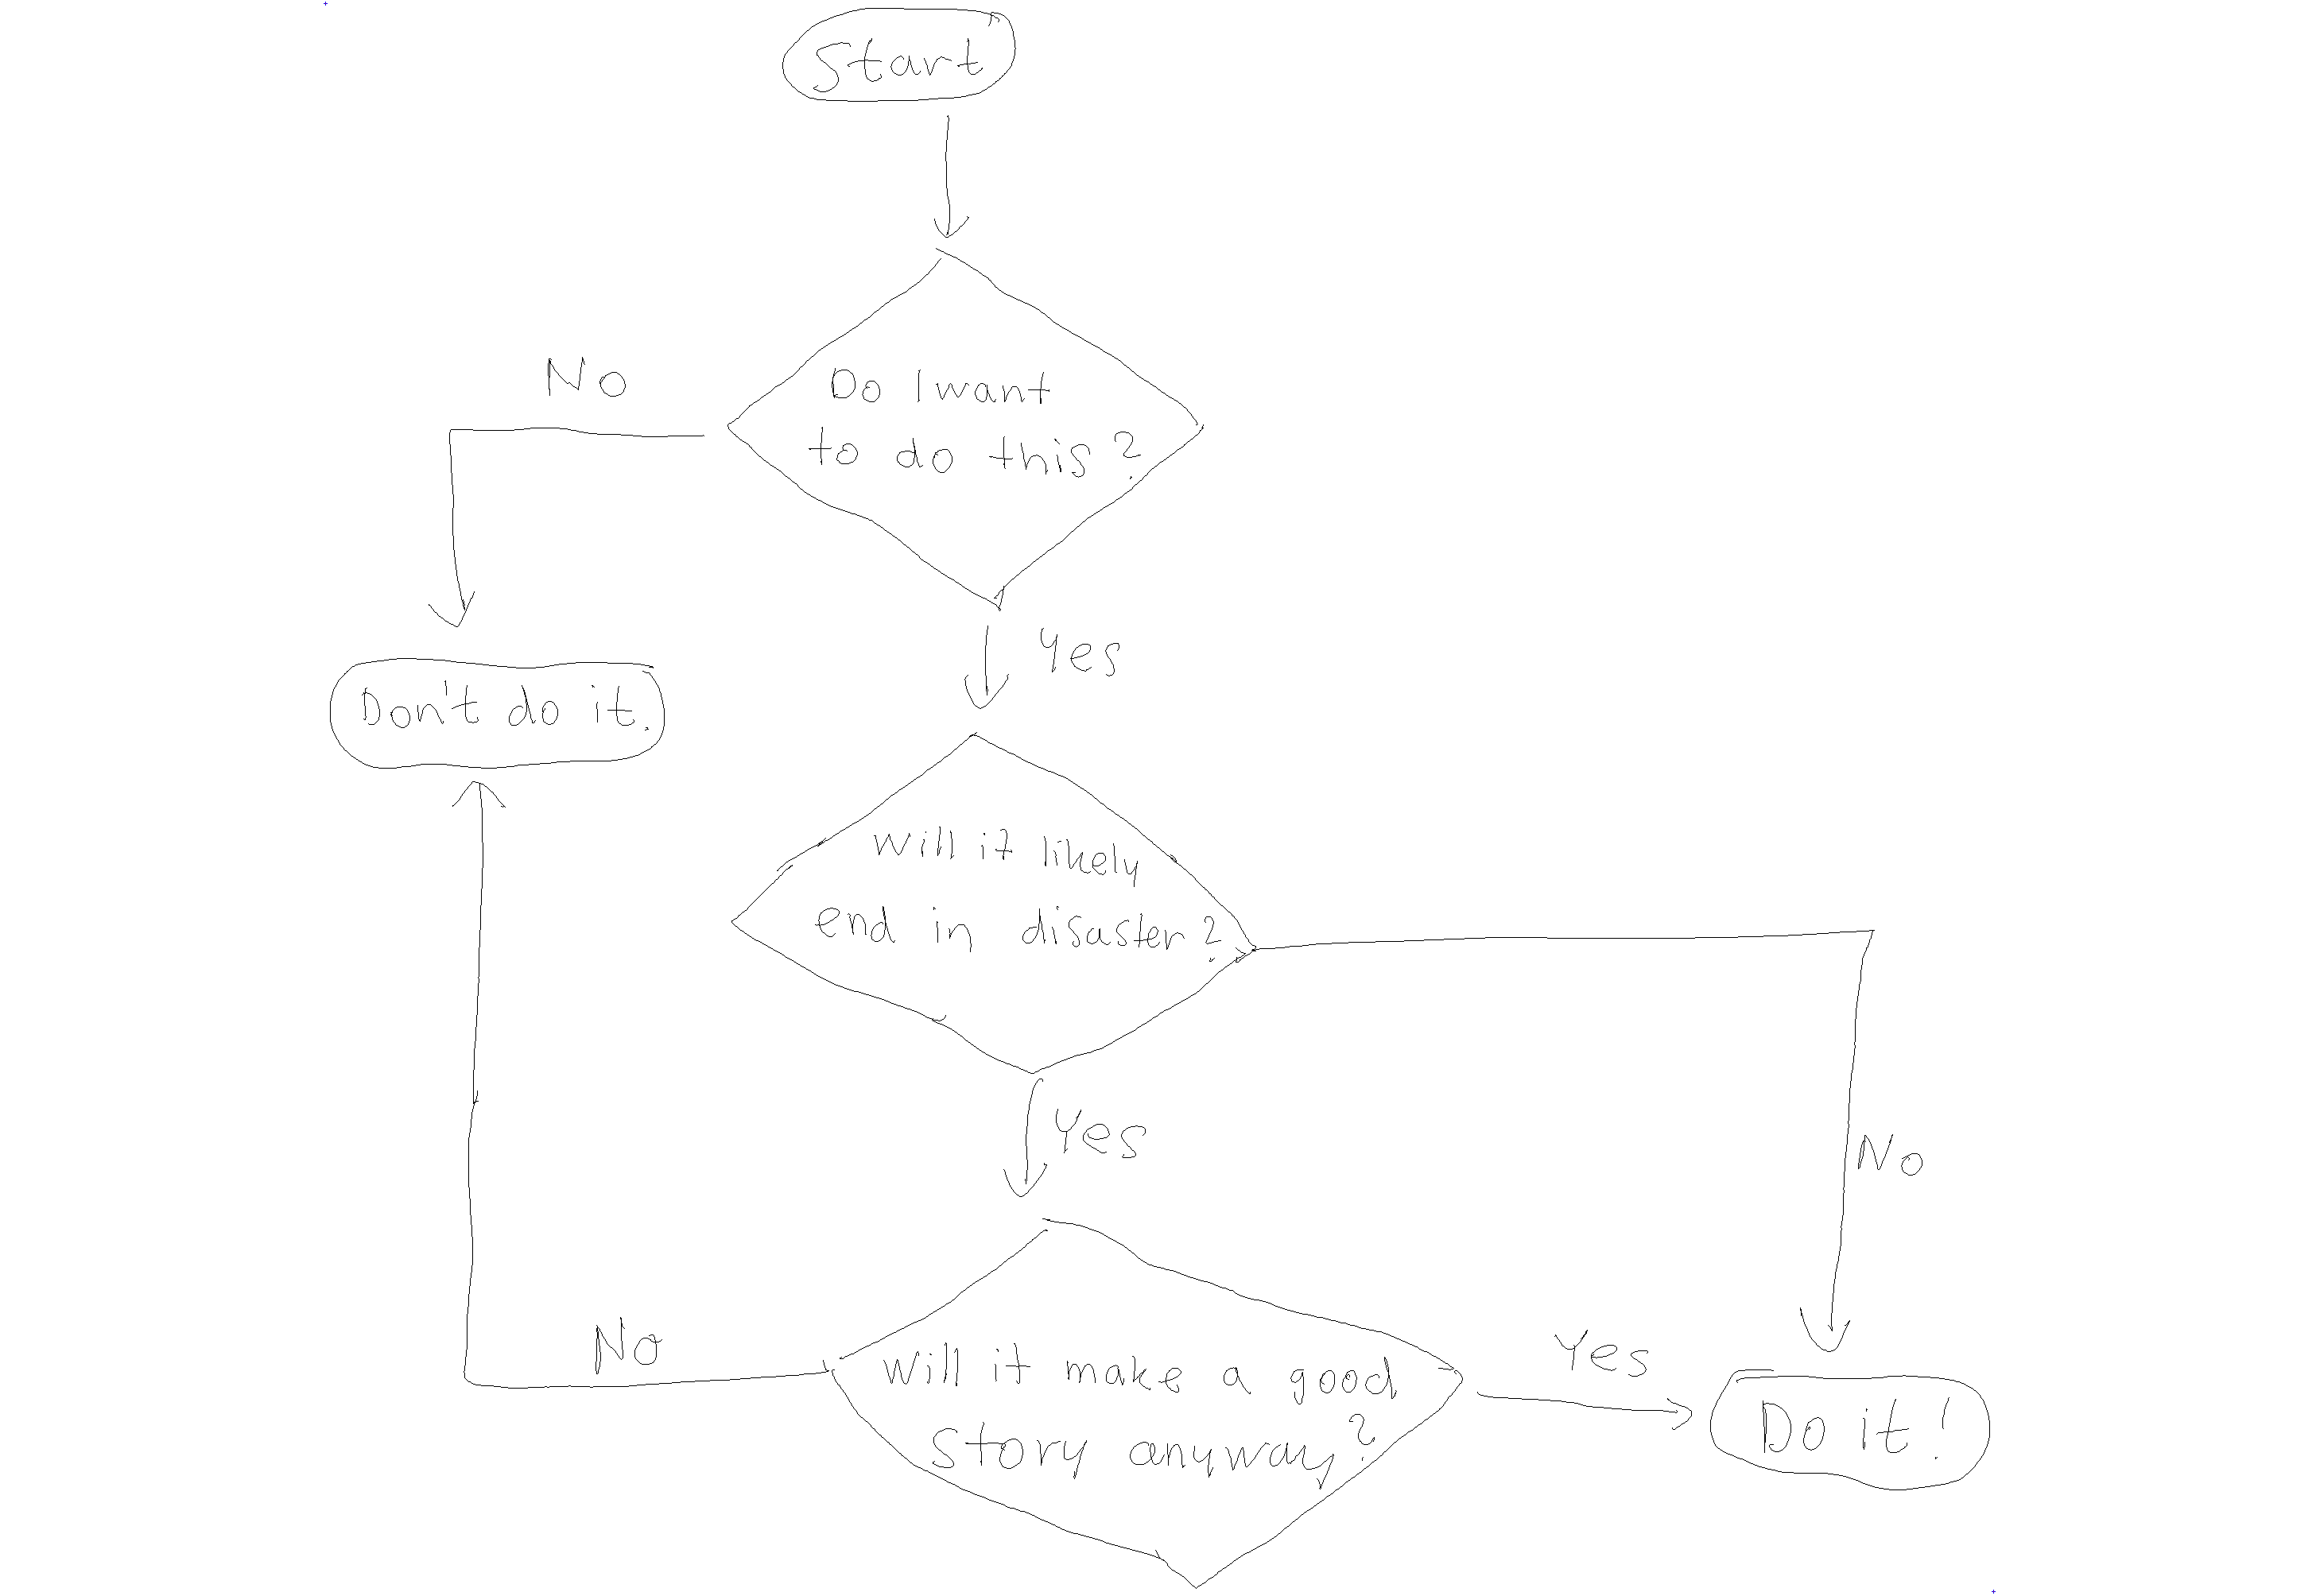 Start
No
Do I want
to do this?
Yes
Don't do it.
Will it likely
end in disaster?
Yes
No
No
Will it make a good
story anyway?
Yes
Do it!